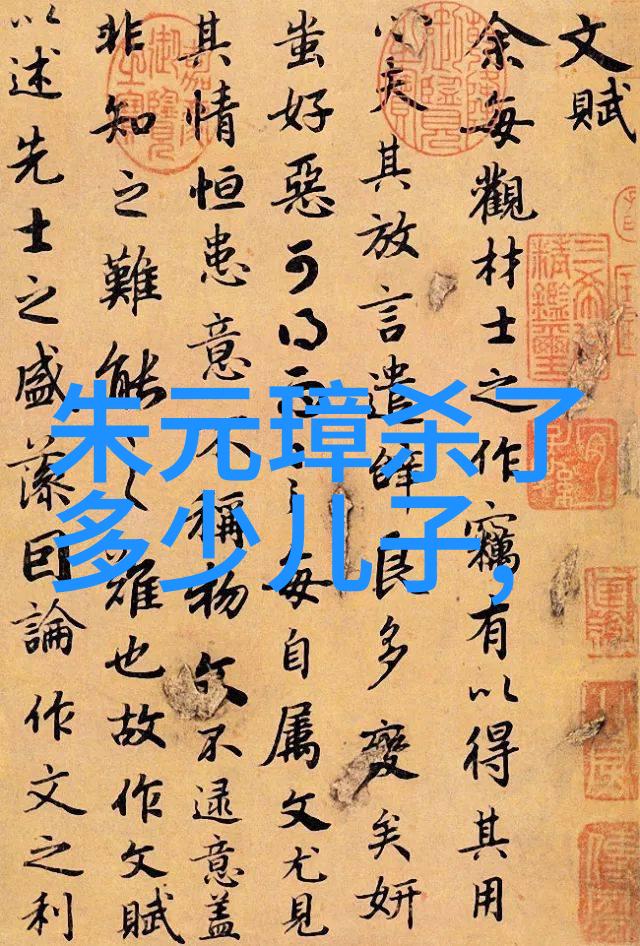 文賦
余每觀材士之作竊有以得其用
心夫其放言遣辭良多變矣妍
蚩好惡可得而言每自属文尤見
其情恒患意不稱物文不逮意盖
非知之難能之難也故作文賦
以述先士之盛藻因論作文之利
朱元璋杀了
多少儿子,